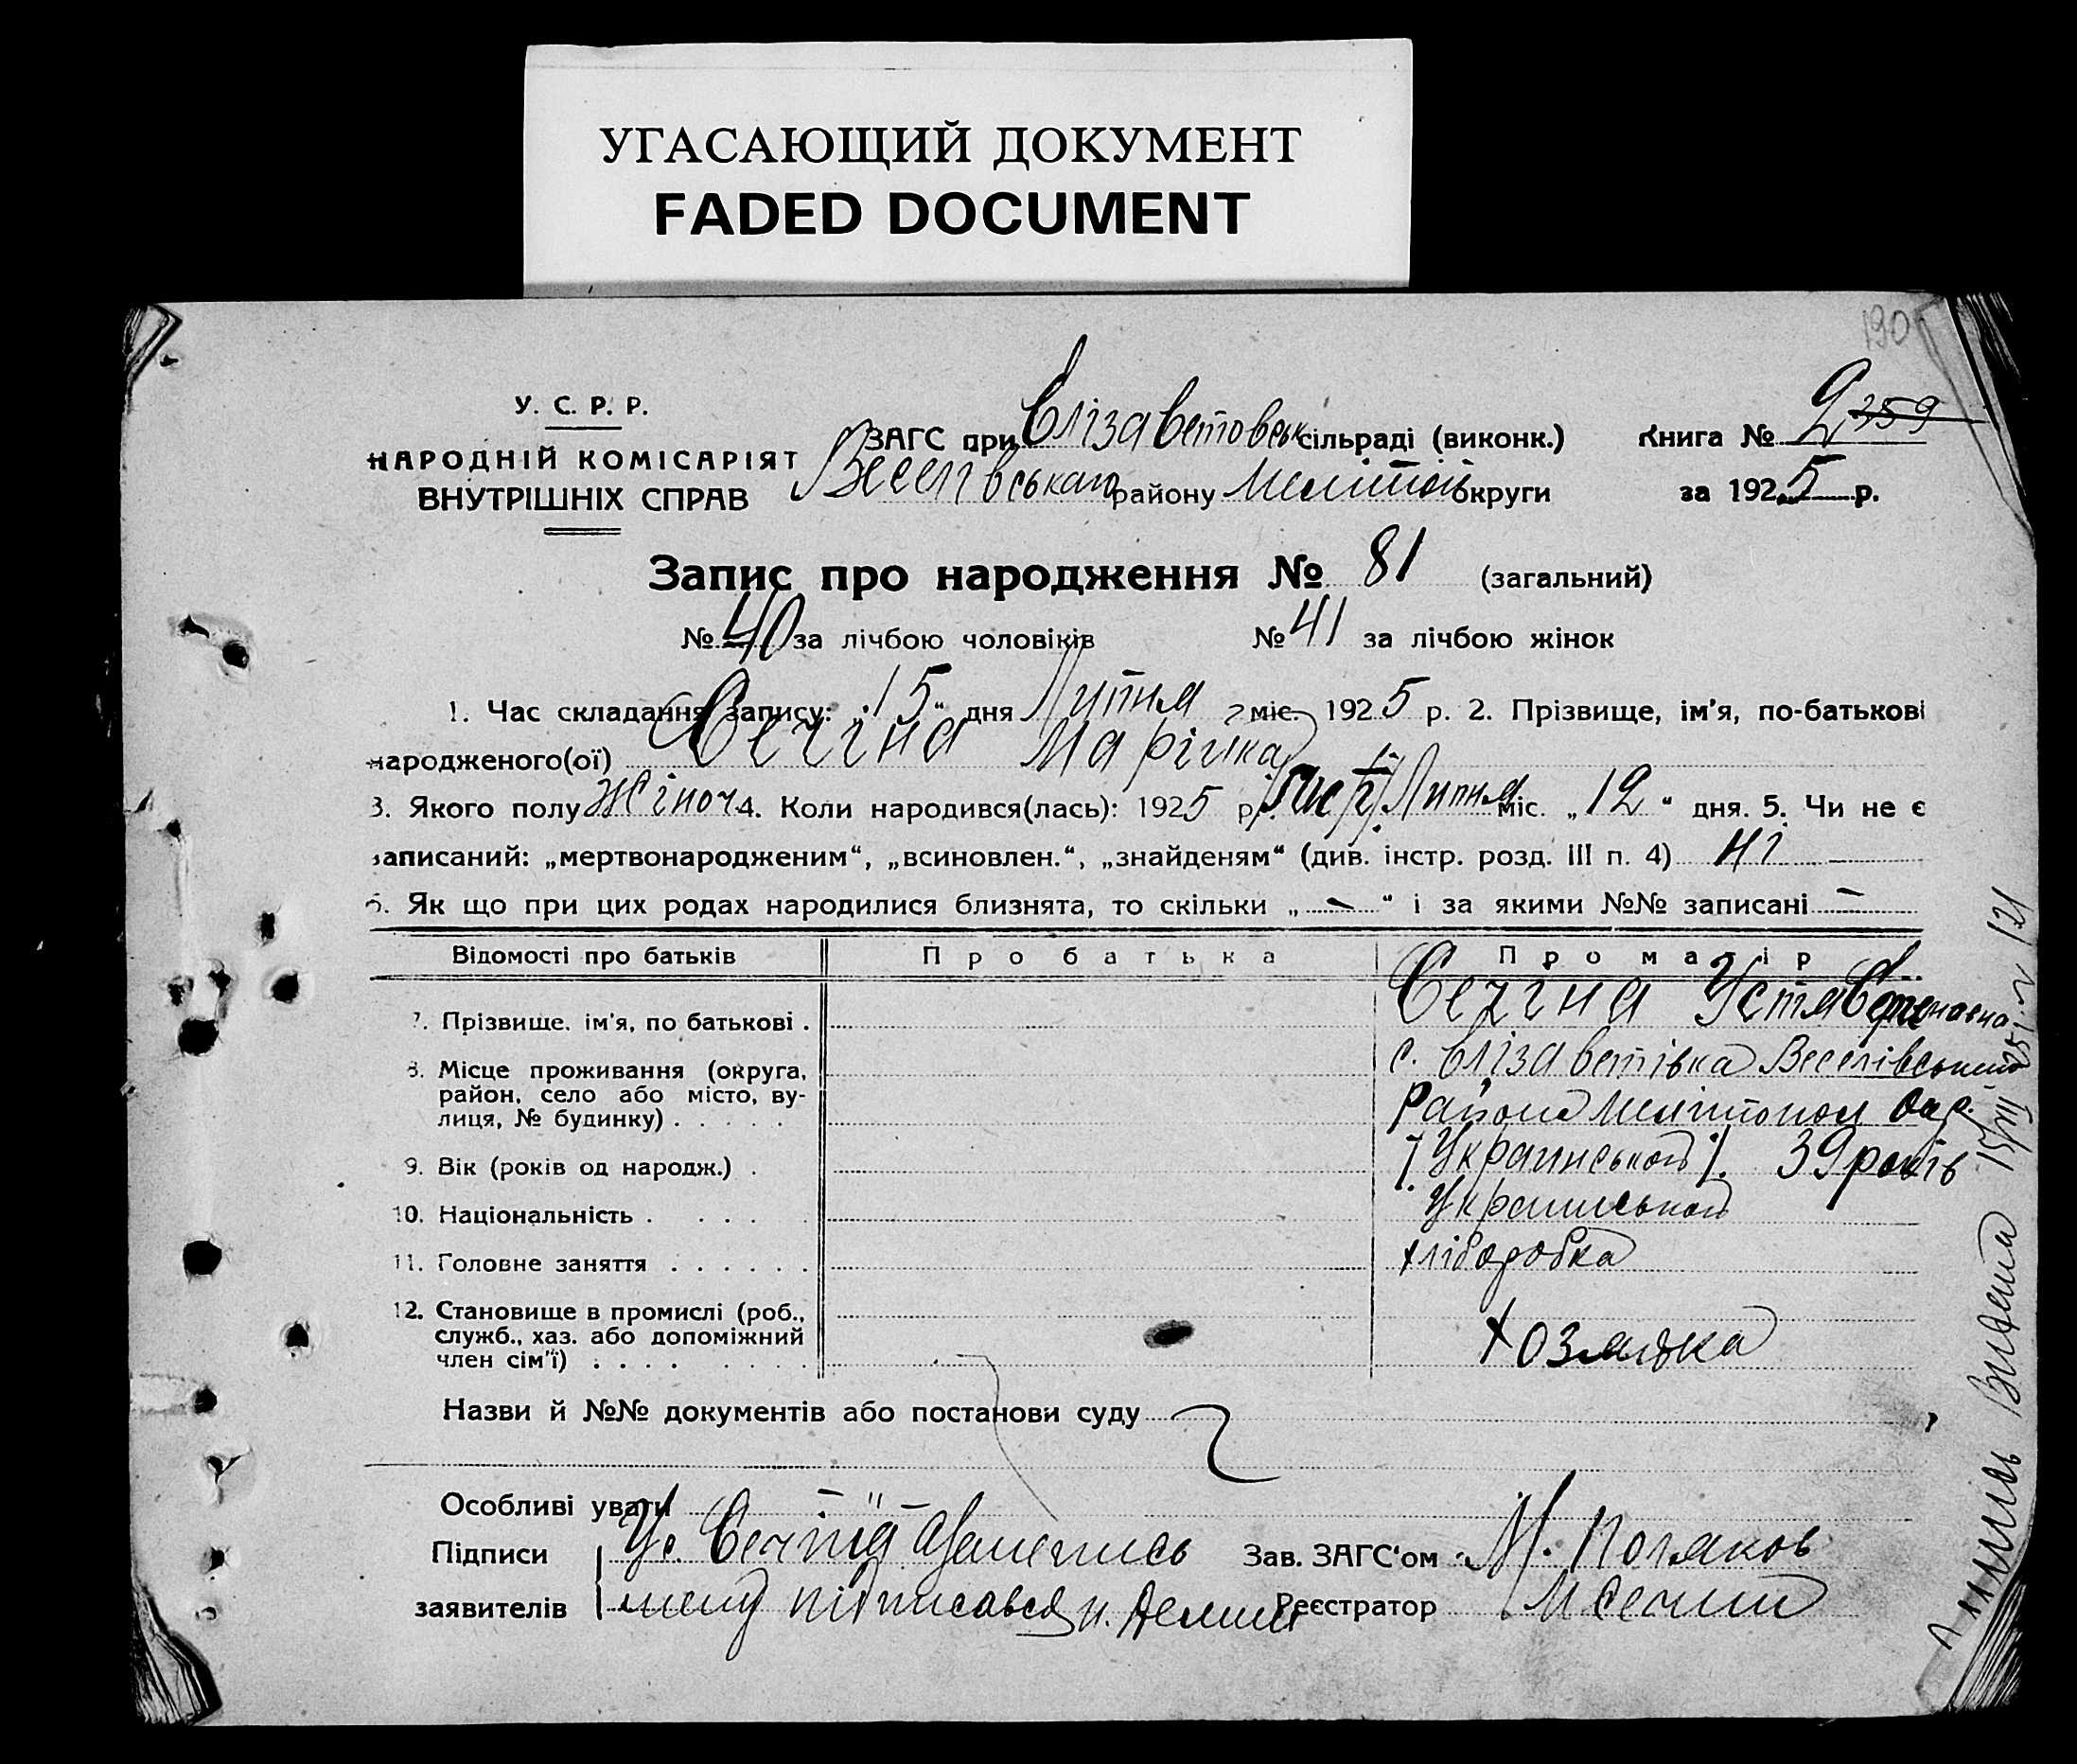 УГАСАЮЩИЙ ДОКУМЕНТ
FADED DOCUMENT
190
У. С. Р. Р.
НАРОДНІЙ КОМІСАРІЯТ
ВНУТРІШНІХ СПРАВ
ЗАГС при Єлізаветовськ сільраді (виконк.)
Веселівського району Мелітоп округи
Книга № 2 359
за 1925 р.
Запис про народження № 81 (загальний)
№ 40 за лічбою чоловіків № 41 за лічбою жінок
1. Час складання запису: „15“ дня Липня міс. 1925 р. 2. Прізвище, ім'я, по-батькові
народженого(ої) Сечіна Марійка
3. Якого полу Жіноч. 4. Коли народився(лась): 1925 р. Липня міс. „12“ дня. 5. Чи не є
записаний: „мертвонародженим“, „всиновлен.“, „знайденям“ (див. інстр. розд. III п. 4) Ні
6. Як що при цих родах народилися близнята, то скільки „-“ і за якими №№ записані -
Відомості про батьків Про батька Про матір
7. Прізвище, ім'я, по батькові . Сечіна Устя
8. Місце проживання (округа, с. Єлізаветівка Веселівського
район, село або місто, ву- Району Мелітопол Окр.
лиця, № будинку) . . . . .
9. Вік (років од народж.) . /Української/. 39 років
10. Національність . . . . Української
11. Головне заняття . . . . . . хліборобка
12. Становище в промислі (роб.,
служб., хаз. або допоміжний хозяйка
член сім'ї) . . . . . . . .
Назви й №№ документів або постанови суду
Особливі уваги - " -
Підписи Ус. Сечіна
заявителів підписався
Зав. ЗАГС'ом М. Поляков
Реєстратор М Сечин